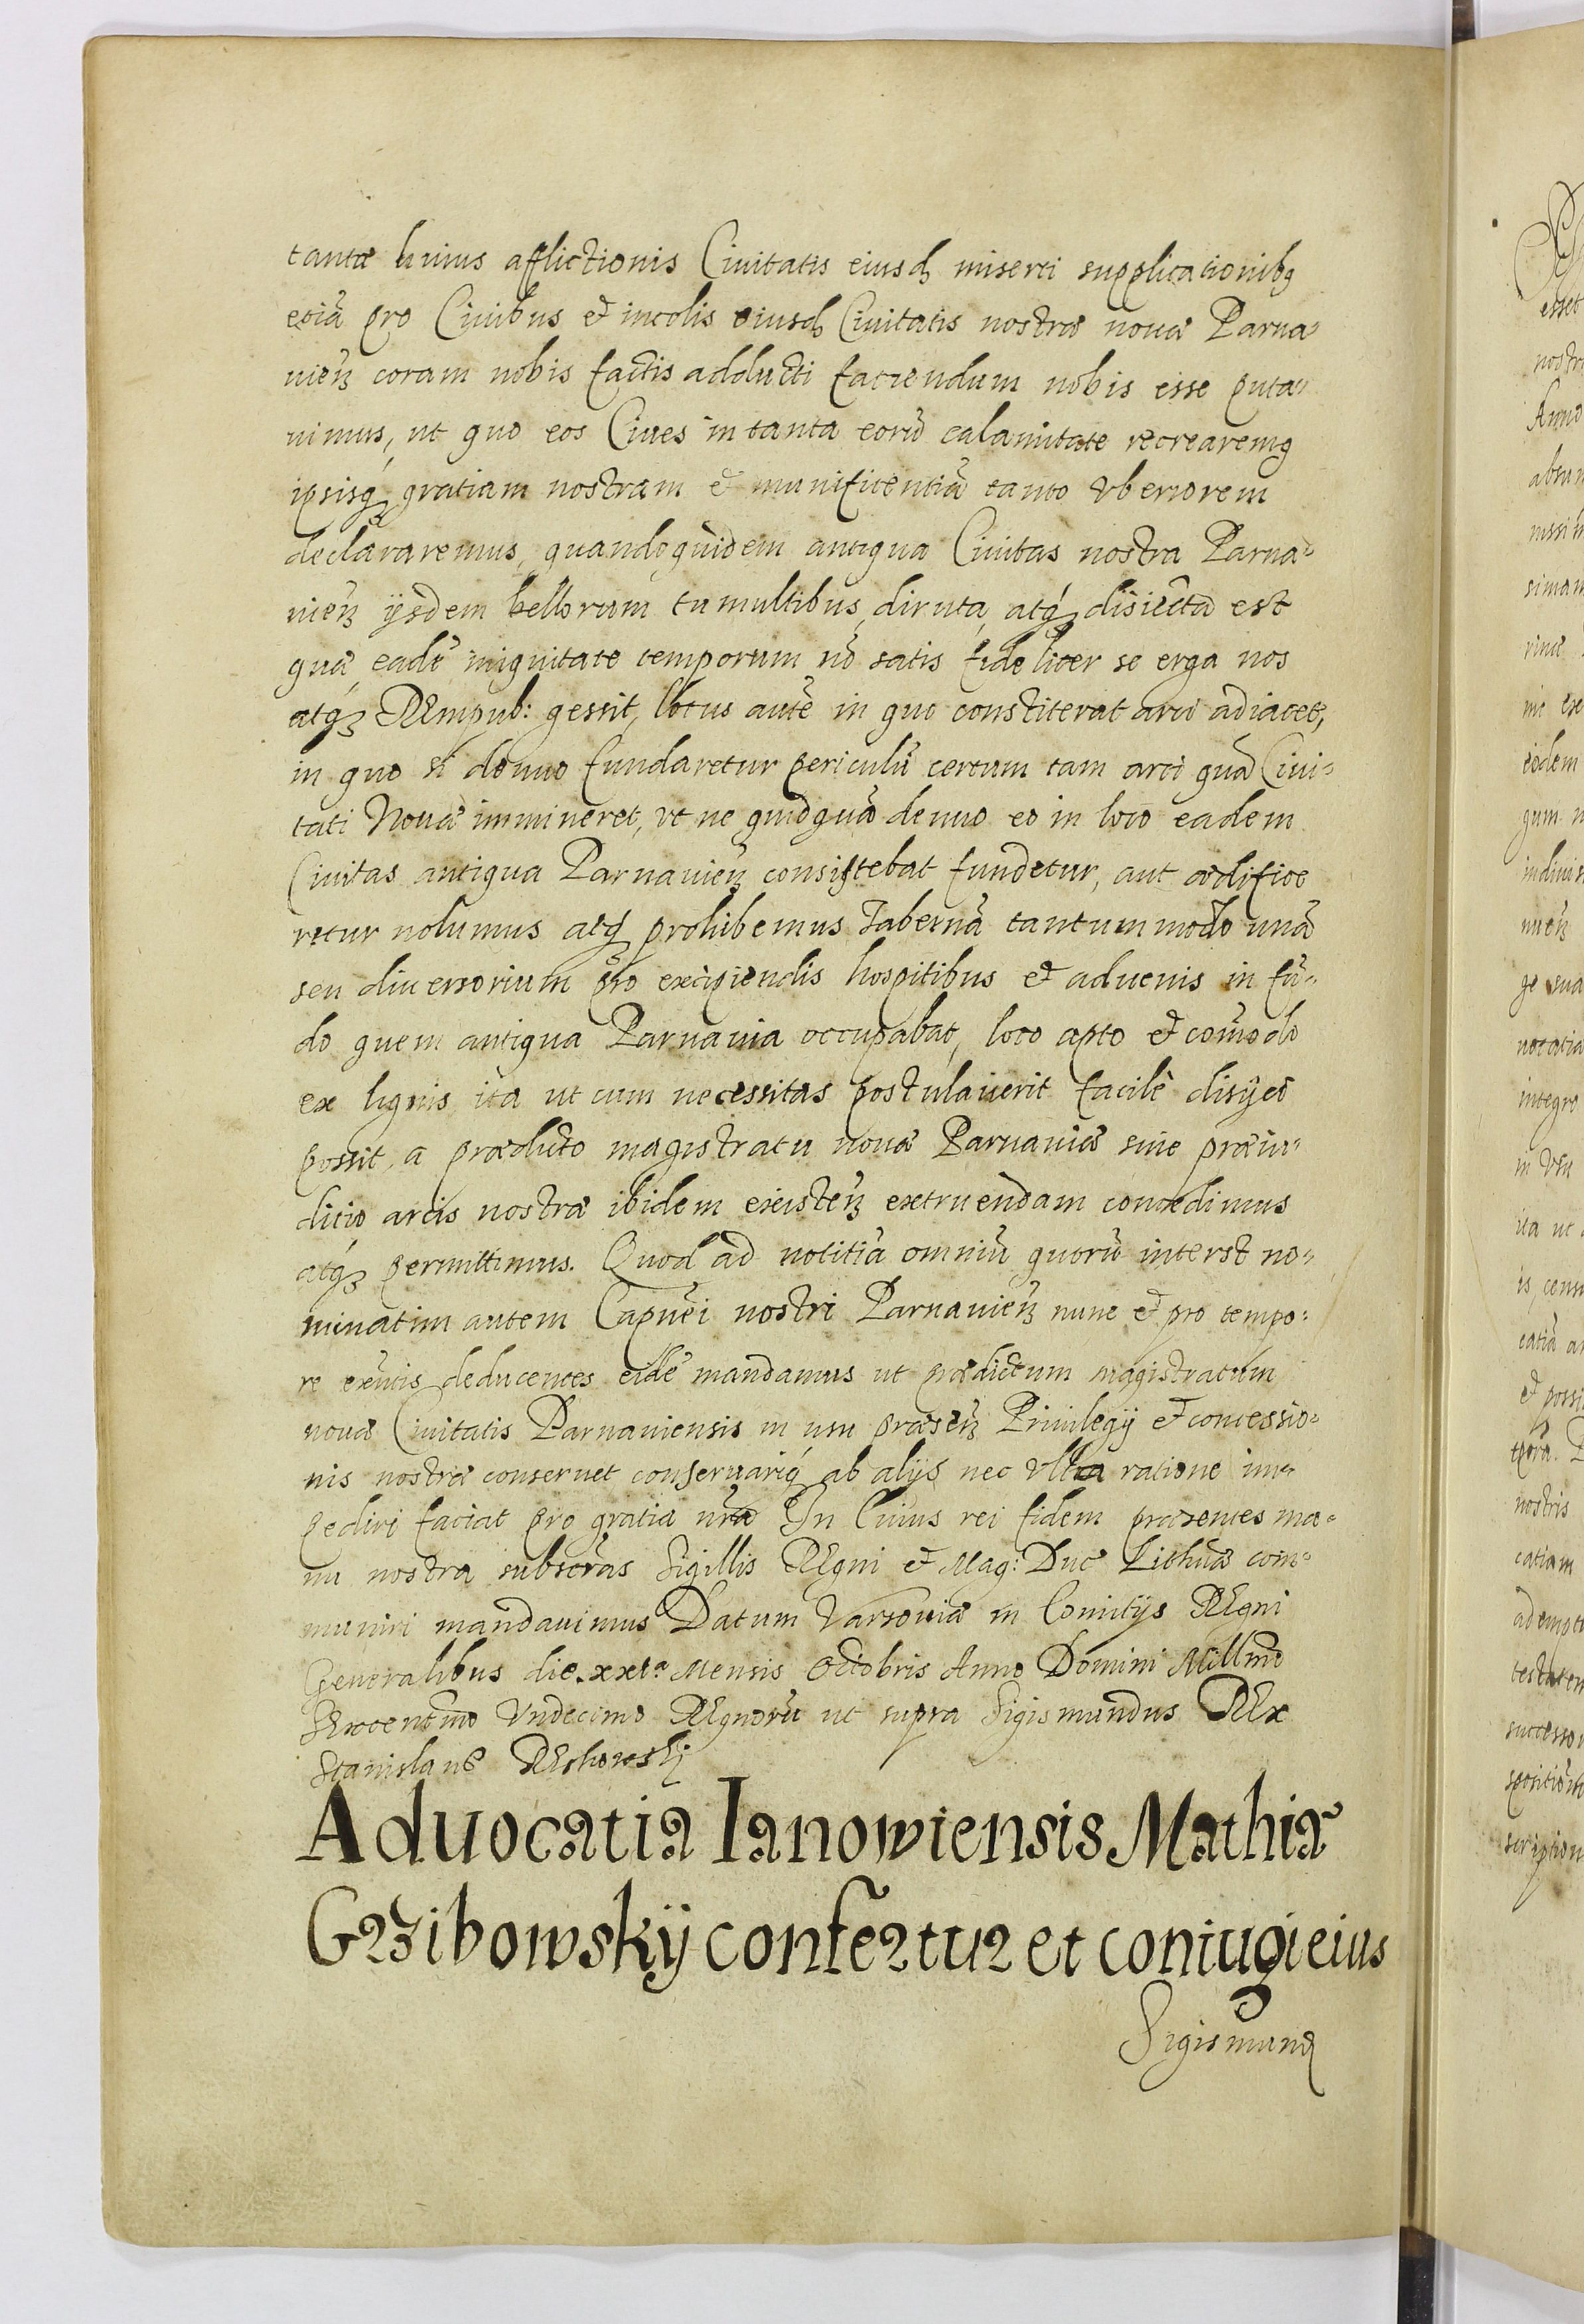 tantæ huius afflictionis Ciuitatis eiusd miserti supplicationibq
etiã pro Ciuibus et incolis eiusd Ciuitatis nostræ nouæ Parna-
uieñ coram nobis factis adducti faciendum nobis esse puta-
uimus, ut quo eos Ciues in tanta eorũ calamitate recrearemq
ipsisq gratiam nostram et munificentiã tanto vberiorem
declararemus, quandoquidem antiqua Ciuitas nostra Parna-
uieñ ijsdem bellorum tumultibus, diruta, atq disiecta est
quæ eadẽ iniquitate temporum nõ satis fideliter se erga nos
atq REmpub: gessit, locus autẽ in quo constiterat arci adiacet,
in quo si denuo fundaretur periculũ certum tam arci quã Ciui-
tati Nouæ immineret, vt ne quidquã denuo eo in loco eadem
Ciuitas antiqua Parnauieñ consistebat fundetur, aut ædifice
retur nolumus atq prohibemus Tabernã tantummodo unã
seu diuersorium pro excipiendis hospitibus et aduenis in fũ-
do quem antiqua Parnauia occupabat, loco apto et cõmodo
ex lignis ita ut cum necessitas postulauerit facilè disijci
possit, a prædicto magistratu nouæ Parnauiæ sine præiu-
ditio arcis nostræ ibidem existeñ extruendam concedimus
atq permittimus. Quod ad notitiã omniũ quorũ interst no-
minatim autem Capnei nostri Parnauieñ nunc et pro tempo-
re exñtis deducentes eidẽ mandamus ut prædictum magistratum
nouæ Ciuitatis Parnauiensis in usu præseñ Priuilegij et concessio-
nis nostræ conseruet conseruariq ab alijs nec vlla ratione im-
pediri faciat pro gratia nrã In Cuius rei fidem præsentes ma-
nu nostra subscrãs Sigillis REgni et Mag: Duc Lithuã com-
muniri mandauimus Datum Varsouiæ in Comitijs REgni
Generalibus die xxia Mensis Octobris Anno Domini Millmo
SExcentmo Vndecimo REgnorũ ut supra Sigismundus REx
Stanislaus
Aduocatia Ianowiensis Mathiæ
Grzibowskij confertur et coniugi eius
Sigismund